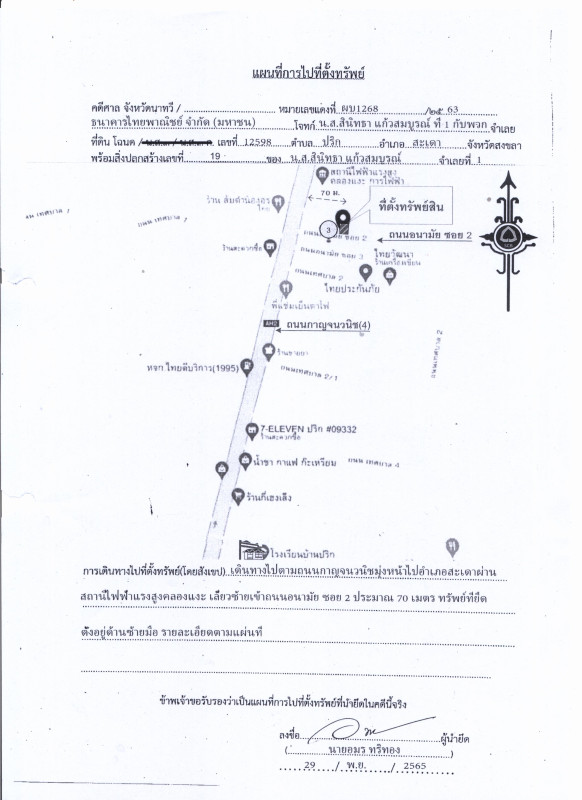 แผนที่การไปที่ตั้งทรัพย์
คดีศาล จังหวัดนาทวี / หมายเลขแดงที่ ผบ1268 /๒๕ 63
ธนาคารไทยพาณิชย์ จำกัด (มหาชน) โจทก์ น.ส.สินิทธา แก้วสมบูรณ์ ที่ 1 กับพวก จำเลย
ที่ดิน โฉนด / เลขที่ 12598 ตำบล ปริก อำเภอ สะเดา จังหวัดสงขลา
พร้อมสิ่งปลูกสร้างเลขที่ 19 ของ น.ส.สินิทธา แก้วสมบูรณ์ จำเลยที่ 1
สถานีไฟฟ้าแรงสูง
คลองแงะ การไฟฟ้า
70 ม.
ที่ตั้งทรัพย์สิน
ถนน เทศบาล 1
3
ซอย 2
ถนนอนามัย ซอย 2
ร้านสะดวกซื้อ
ถนนอนามัย ซอย 3
ไทยวัฒนา
ถนนเทศบาล 2
ไทยประกันภัย
พี่แช่มเย็นตาโฟ
AH2
ถนนกาญจนวนิช(4)
ร้านขายยา
หจก ไทยดีบริการ(1995)
ถนนเทศบาล 2/1
7-ELEVEN ปริก #09332
ร้านสะดวกซื้อ
น้ำชา กาแฟ ก๊ะเหรียม
ถนน เทศบาล 4
ร้านกี่เฮงเส็ง
โรงเรียนบ้านปริก
การเดินทางไปที่ตั้งทรัพย์(โดยสังเขป) เดินทางไปตามถนนกาญจนวนิชมุ่งหน้าไปอำเภอสะเดาผ่าน
สถานีไฟฟ้าแรงสูงคลองแงะ เลี้ยวซ้ายเข้าถนนอนามัย ซอย 2 ประมาณ 70 เมตร ทรัพย์ที่ยึด
ตั้งอยู่ด้านซ้ายมือ รายละเอียดตามแผนที่
ข้าพเจ้าขอรับรองว่าเป็นแผนที่การไปที่ตั้งทรัพย์ที่นำยึดในคดีนี้จริง
ลงชื่อ ผู้นำยึด
( นายอมร ทริทอง )
29 / พ.ย. / 2565